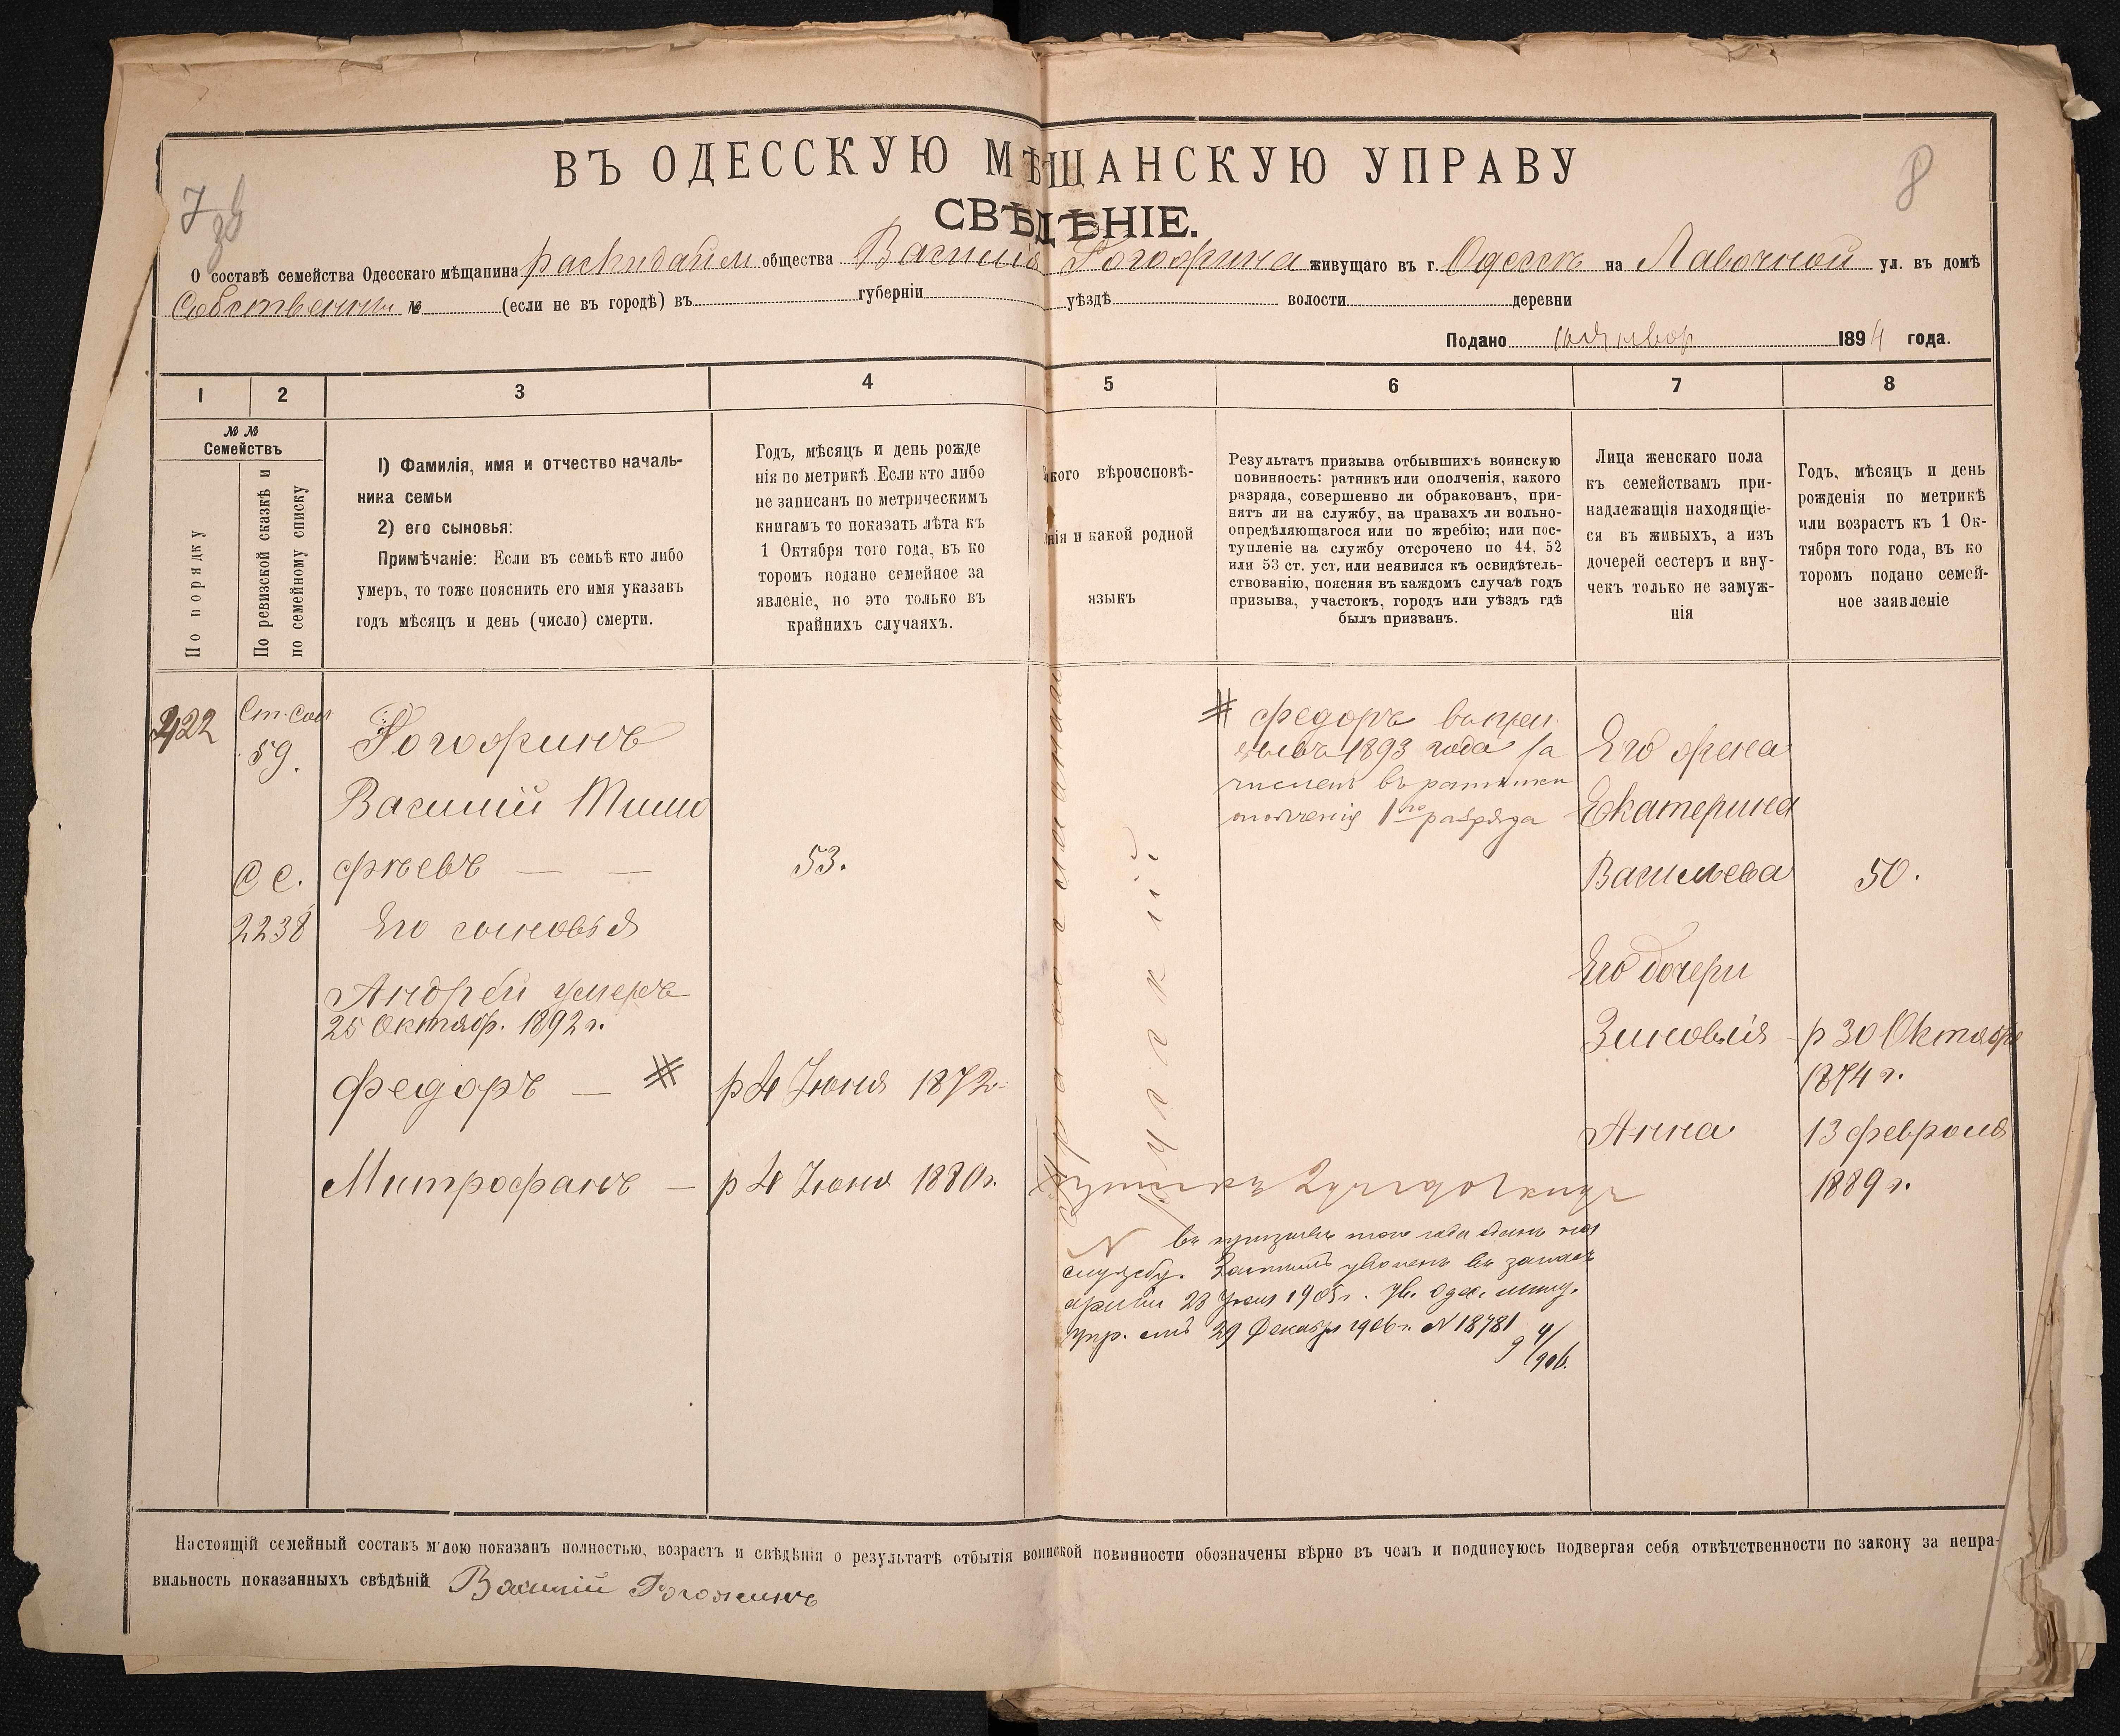 ВЪ ОДЕССКУЮ МѢЩАНСКУЮ УПРАВУ
7
8
СВѢДѢНІЕ.
О составѣ семейства Одесскаго мѣщанина общества Василія Рогожина живущаго въ г. Одессѣ на Лавочной ул. въ домѣ
Собственны № (если не въ городѣ) въ губерніи уѣздѣ волости деревни
Подано 1894 года.
1 2 3 4 5 6 7 8
№ №
Семействъ
По порядку
По ревизской сказкѣ и
по семейному списку
1) Фамилія, имя и отчество началь-
ника семьи
2) его сыновья:
Примѣчаніе: Если въ семьѣ кто либо
умеръ, то тоже пояснить его имя указавъ
годъ мѣсяцъ и день (число) смерти.
Годъ, мѣсяцъ и день рожде
нія по метрикѣ Если кто либо
не записанъ по метрическимъ
книгамъ то показать лѣта къ
1 Октября того года, въ ко
торомъ подано семейное за
явленіе, но это только въ
крайнихъ случаяхъ.
вѣроисповѣ-
нія и какой родной
языкъ
Результатъ призыва отбывшихъ воинскую
повинность: ратникъ или ополченія, какого
разряда, совершенно ли обракованъ, при-
нятъ ли на службу, на правахъ ли вольно-
опредѣляющагося или по жребію; или пос-
тупленіе на службу отсрочено по 44, 52
или 53 ст. уст. или неявился къ освидѣтель-
ствованію, поясняя въ каждомъ случаѣ годъ
призыва, участокъ, городъ или уѣздъ гдѣ
былъ призванъ.
Лица женскаго пола
къ семействамъ при-
надлежащія находящіе-
ся въ живыхъ, а изъ
дочерей сестеръ и вну-
чекъ только не замуж-
нія
Годъ, мѣсяцъ и день
рожденія по метрикѣ
или возрастъ къ 1 Ок-
тября того года, въ ко
торомъ подано семей-
ное заявленіе
422
59.
С С.
2238
Рогожинъ
Василій Тимо
фѣевъ — —
Его сыновья
Андрей умеръ
25 Октябр. 1892 г.
Федоръ — #
Митрофанъ —
53.
р 4 Іюня 1872
р 4 Іюня 1880 г.
# Федоръ въ при
зывъ 1893 года за
численъ въ ратники
ополченія 1го разряда
Его жена
Екатерина
Васильева
Его дочери
Зиновія
Анна
50.
р 30 Октября
1874 г.
13 февраля
1889 г.
въ призывъ того года на
службу. уволенъ въ запасъ
арміи 23 1905 г. Ув. Одес. мѣщ.
упр. отъ 29 Декабря 1906 г. № 18781
Настоящій семейный составъ мною показанъ полностью, возрастъ и свѣдѣнія о результатѣ отбытія воинской повинности обозначены вѣрно въ чемъ и подписуюсь подвергая себя отвѣтственности по закону за непра-
вильность показанныхъ свѣдѣній Василій Рогожинъ